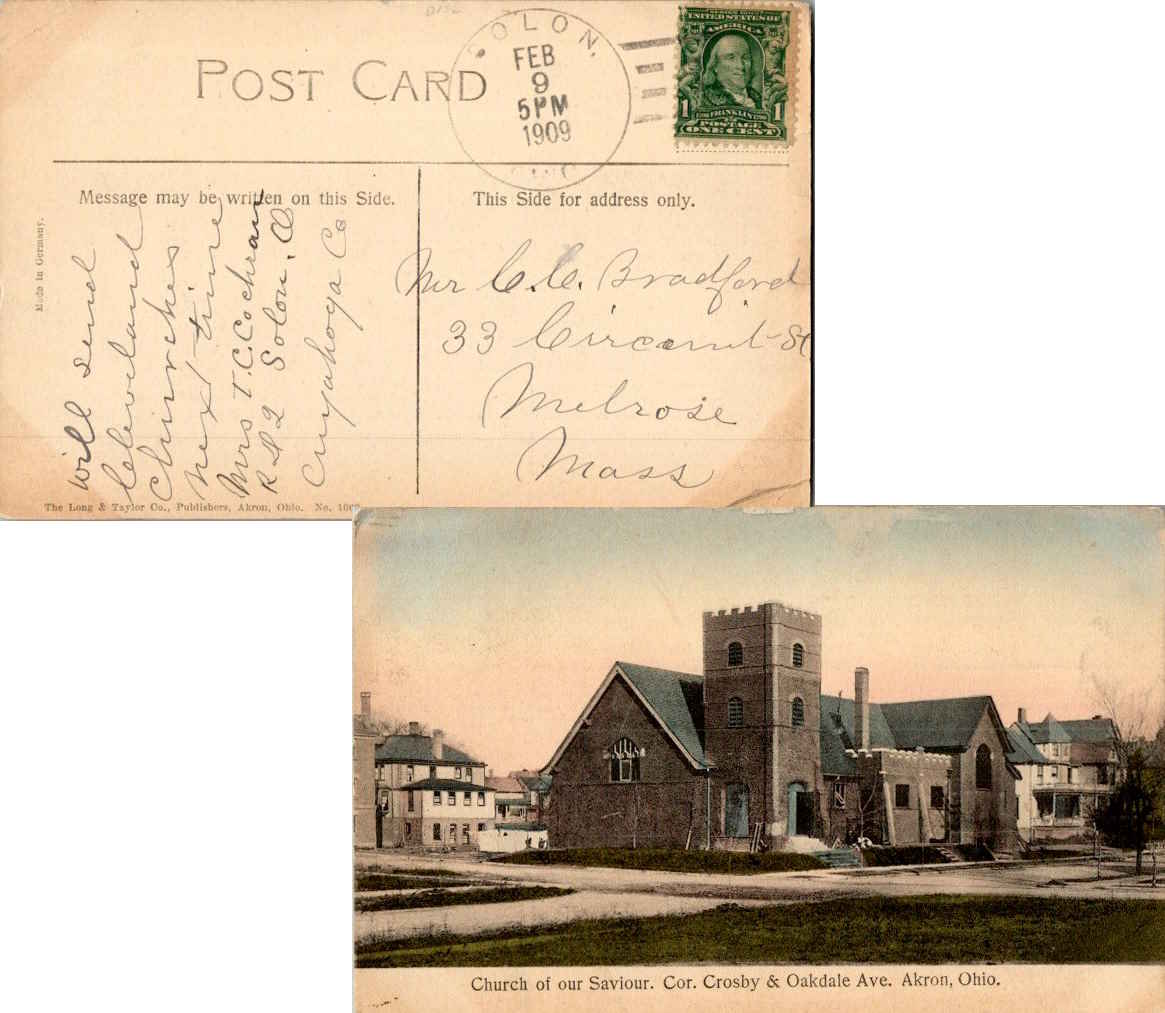 POST CARD
SOLON,
FEB
9
5PM
1909
UNITED STATES OF
AMERICA
1 FRANKLIN 1
POSTAGE
ONE CENT
Message may be written on this Side.
This Side for address only.
Made in Germany.
will send
Cleveland
Churches
next time
Mrs T.C. Cochran
R.D. 2 Solon. O
Cuyahoga Co
Mr C.C. Bradford
33 Circuit St
Melrose
Mass
The Long & Taylor Co., Publishers, Akron, Ohio. No.
Church of our Saviour. Cor. Crosby & Oakdale Ave. Akron, Ohio.